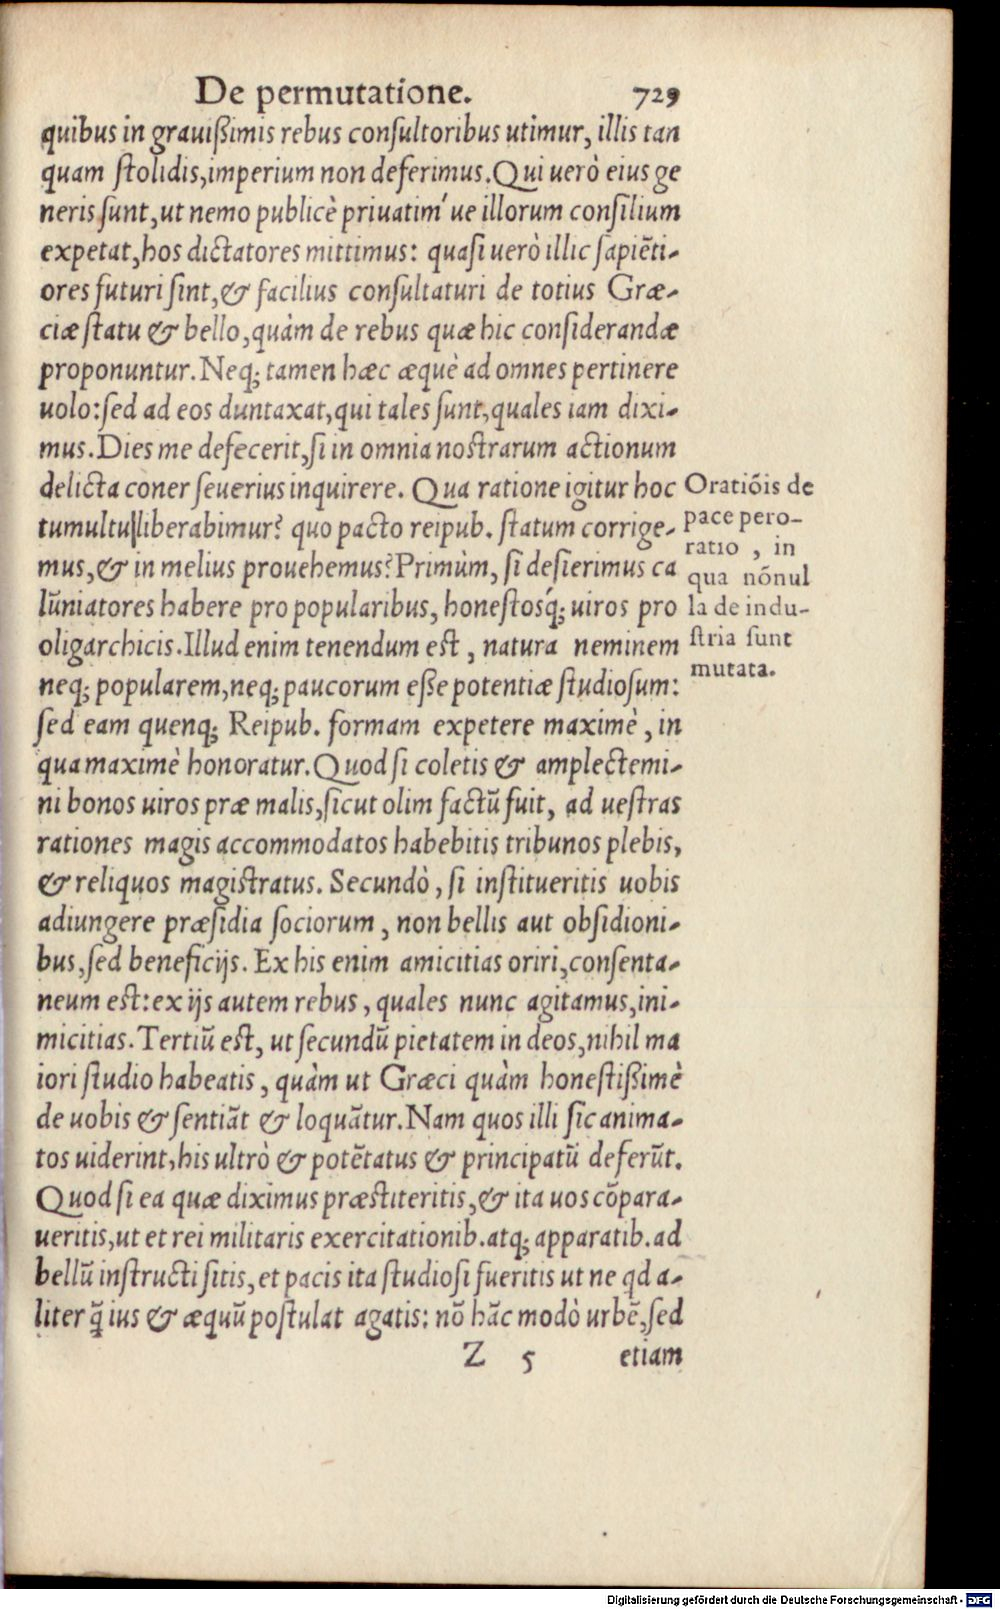 De permutatione. 729
quibus in grauißimis rebus consultoribus utimur, illis tan
quam stolidis, imperium non deferimus. Qui uerò eius ge
neris sunt, ut nemo publicè priuatim´ue illorum consilium
expetat, hos dictatores mittimus: quasi uerò illic sapiẽti-
ores futuri sint, & facilius consultaturi de totius Græ-
ciæ statu & bello, quàm de rebus quæ hic considerandæ
proponuntur. Neq; tamen hæc æquè ad omnes pertinere
uolo: sed ad eos duntaxat, qui tales sunt, quales iam dixi-
mus. Dies me defecerit, si in omnia nostrarum actionum
delicta coner seuerius inquirere. Qua ratione igitur hoc
tumultu liberabimur? quo pacto reipub. statum corrige-
mus, & in melius prouehemus? Primùm, si desierimus ca
lũniatores habere pro popularibus, honestosq́; uiros pro
oligarchicis. Illud enim tenendum est, natura neminem
neq; popularem, neq; paucorum eße potentiæ studiosum:
sed eam quenq; Reipub. formam expetere maximè, in
qua maximè honoratur. Quod si coletis & amplectemi-
ni bonos uiros præ malis, sicut olim factũ fuit, ad uestras
rationes magis accommodatos habebitis tribunos plebis,
& reliquos magistratus. Secundò, si institueritis uobis
adiungere præsidia sociorum, non bellis aut obsidioni-
bus, sed beneficijs. Ex his enim amicitias oriri, consenta-
neum est: ex ijs autem rebus, quales nunc agitamus, ini-
micitias. Tertiũ est, ut secundũ pietatem in deos, nihil ma
iori studio habeatis, quàm ut Græci quàm honestißimè
de uobis & sentiãt & loquãtur. Nam quos illi sic anima-
tos uiderint, his ultrò & potẽtatus & principatũ deferũt.
Quod si ea quæ diximus præstiteritis, & ita uos cõpara-
ueritis, ut et rei militaris exercitationib. atq; apparatib. ad
bellũ instructi sitis, et pacis ita studiosi fueritis ut ne qd a-
liter q̃ ius & æquũ postulat agatis: nõ hãc modò urbẽ, sed
Z 5 etiam
Oratiõis de
pace pero-
ratio, in
qua nõnul
la de indu-
stria sunt
mutata.
Digitalisierung gefördert durch die Deutsche Forschungsgemeinschaft - DFG